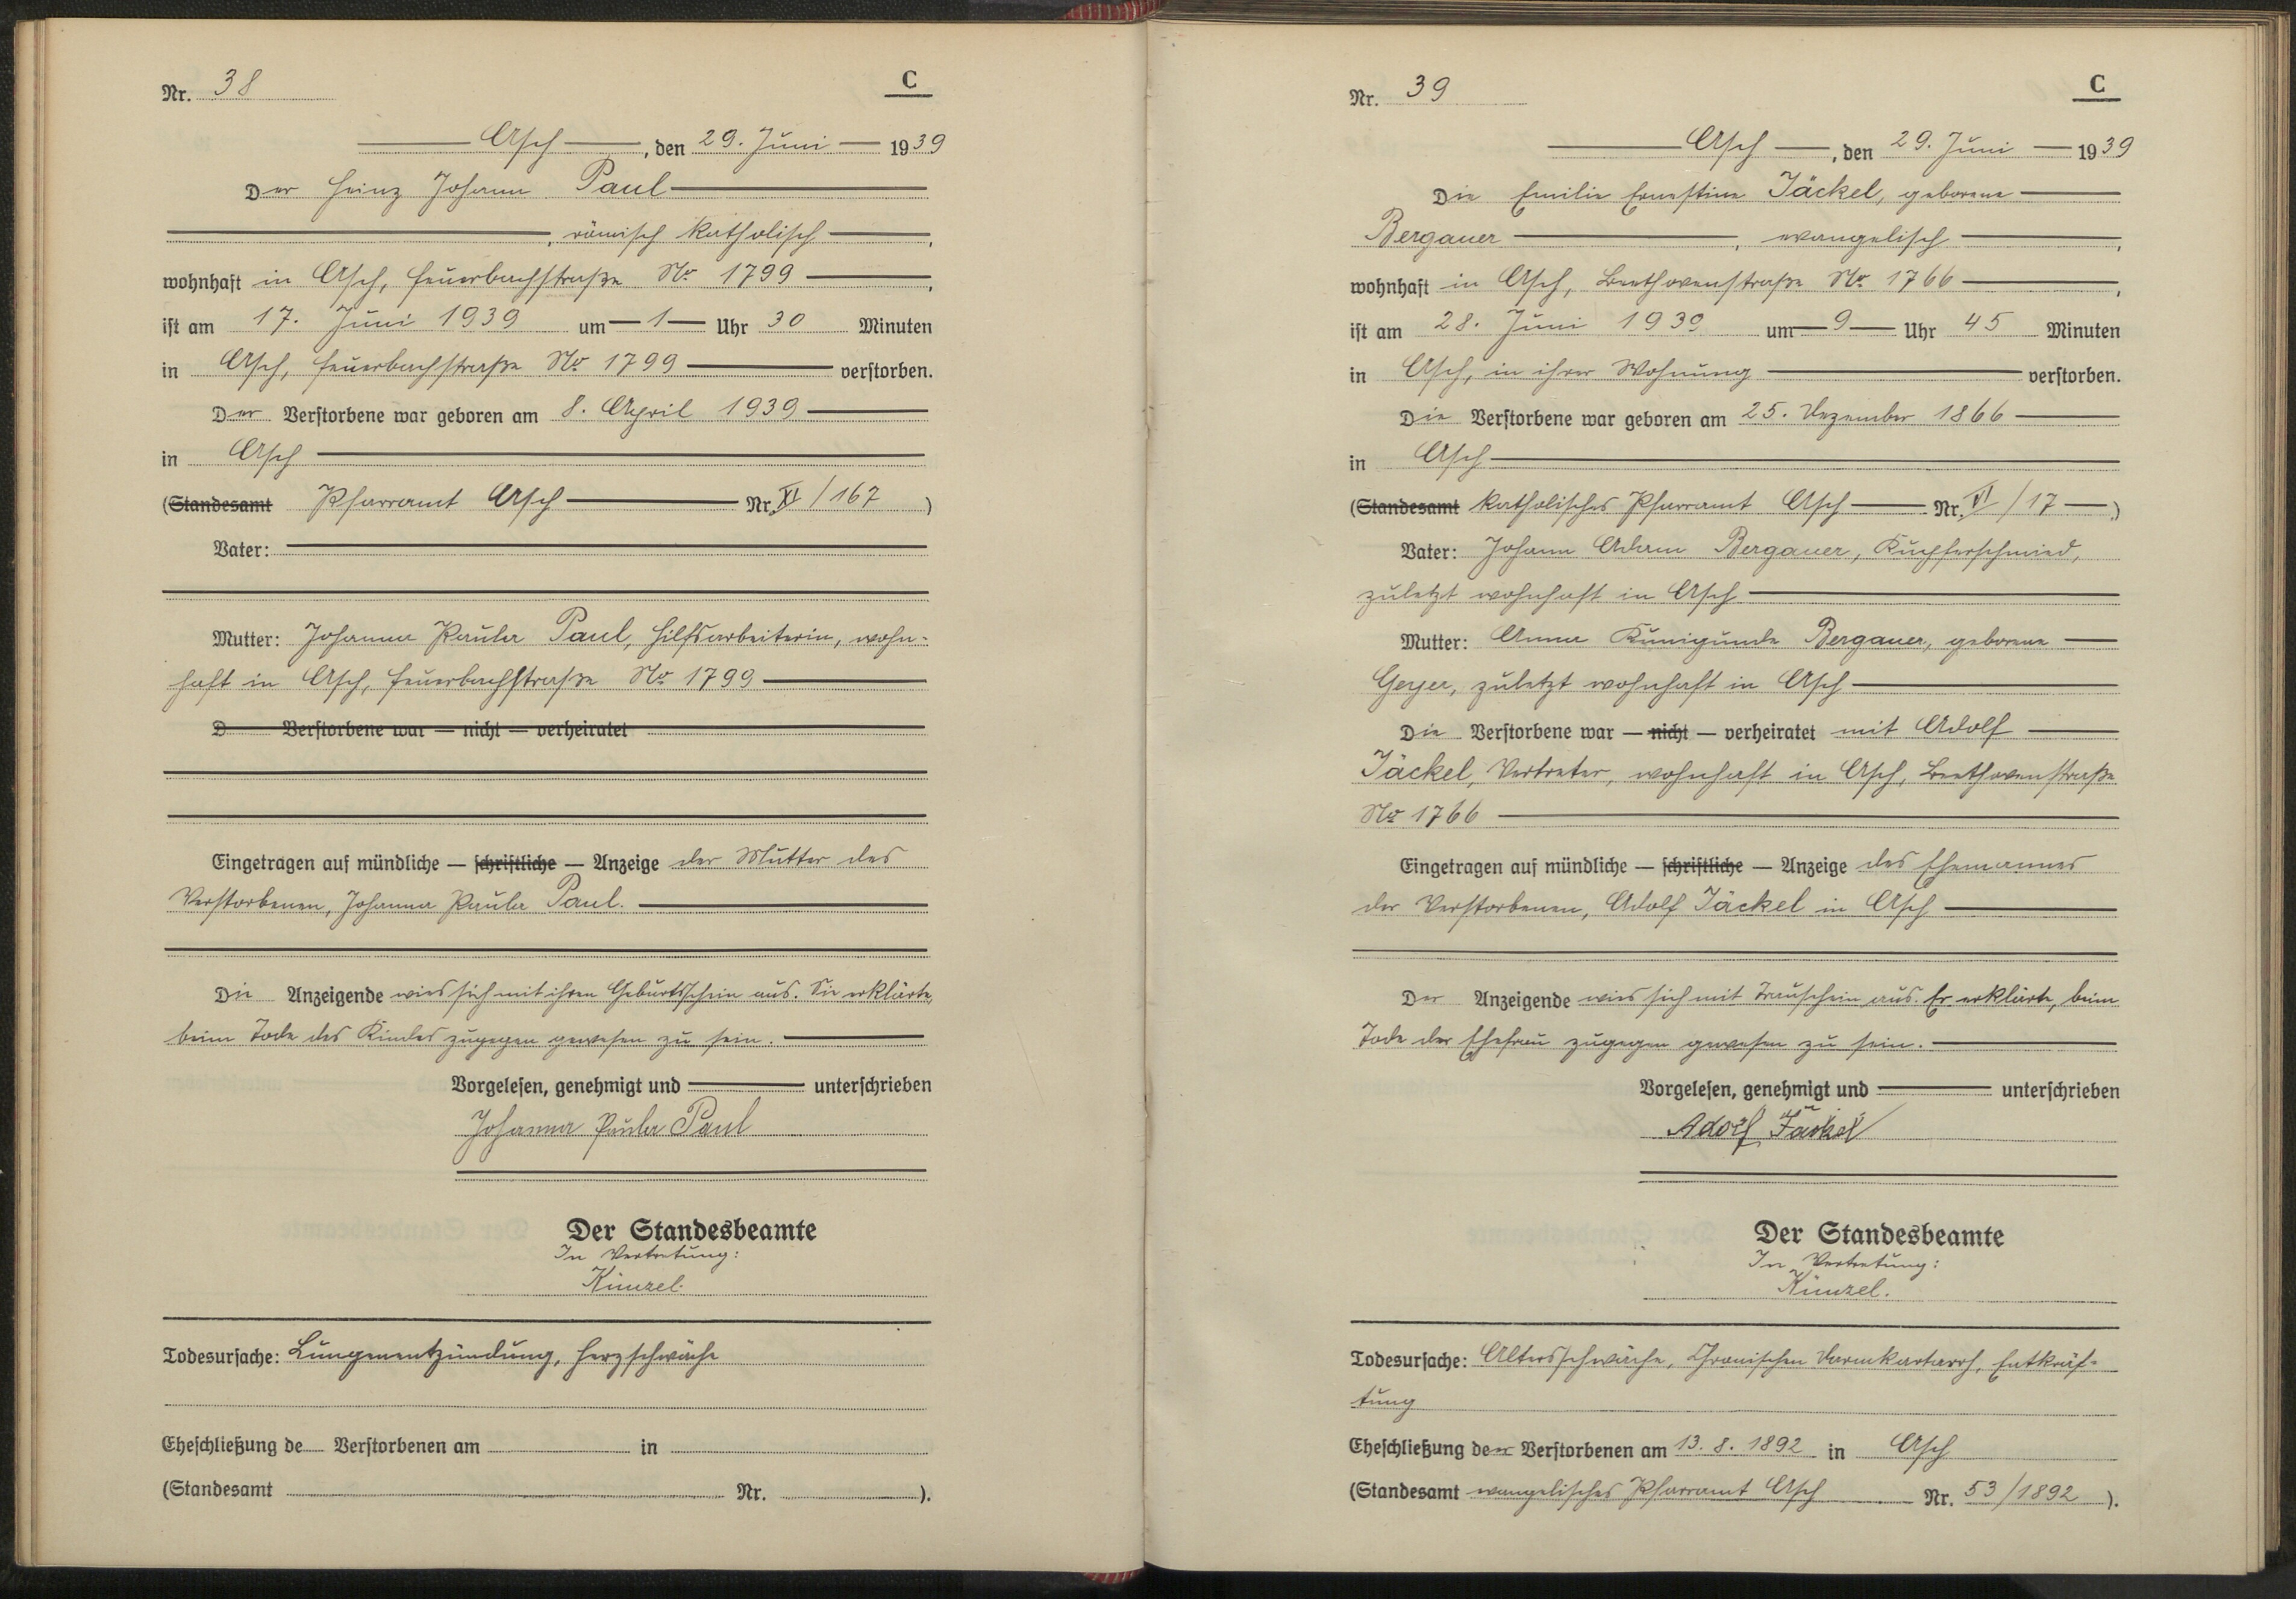 Nr. 38
C
Asch, den 29. Juni 1939
Der Heinz Johann Paul
, römisch katholisch,
wohnhaft in Asch, Feuerbachstraße No 1799,
ist am 17. Juni 1939 um 1 Uhr 30 Minuten
in Asch, Feuerbachstraße No 1799 verstorben.
Der Verstorbene war geboren am 8. April 1939
in Asch
(Standesamt Pfarramt Asch Nr. XI/167)
Vater:
Mutter: Johanna Paula Paul, Hilfsarbeiterin, wohn-
haft in Asch, Feuerbachstraße No 1799
D Verstorbene war — nicht — verheiratet
Eingetragen auf mündliche — schriftliche — Anzeige der Mutter des
Verstorbenen, Johanna Paula Paul.
Die Anzeigende wies sich mit ihren Geburtsschein aus. Sie erklärte,
beim Tode des Kindes zugegen gewesen zu sein.
Vorgelesen, genehmigt und unterschrieben
Johanna Paula Paul
Der Standesbeamte
In Vertretung:
Künzel.
Todesursache: Lungenentzündung, Herzschwäche
Eheschließung de Verstorbenen am in
(Standesamt Nr. ).
Nr. 39
C
Asch, den 29. Juni 1939
Die Emilie Ernestine Jäckel, geborene
Bergauer, evangelisch,
wohnhaft in Asch, Beethovenstraße No 1766,
ist am 28. Juni 1939 um 9 Uhr 45 Minuten
in Asch, in ihrer Wohnung verstorben.
Die Verstorbene war geboren am 25. Dezember 1866
in Asch
(Standesamt katholisches Pfarramt Asch Nr. VI/17)
Vater: Johann Adam Bergauer, Kupferschmied,
zuletzt wohnhaft in Asch
Mutter: Anna Kunigunde Bergauer, geborene
Geyer, zuletzt wohnhaft in Asch
Die Verstorbene war — nicht — verheiratet mit Adolf
Jäckel, Vertreter, wohnhaft in Asch, Beethovenstraße
No 1766
Eingetragen auf mündliche — schriftliche — Anzeige des Ehemannes
der Verstorbenen, Adolf Jäckel in Asch
Der Anzeigende wies sich mit Trauschein aus. Er erklärte, beim
Tode der Ehefrau zugegen gewesen zu sein.
Vorgelesen, genehmigt und unterschrieben
Adolf Jäckel
Der Standesbeamte
In Vertretung:
Künzel.
Todesursache: Altersschwäche, Chronischen Darmkartarrh, Entkräf-
tung
Eheschließung der Verstorbenen am 13. 8. 1892 in Asch
(Standesamt evangelisches Pfarramt Asch Nr. 53/1892).